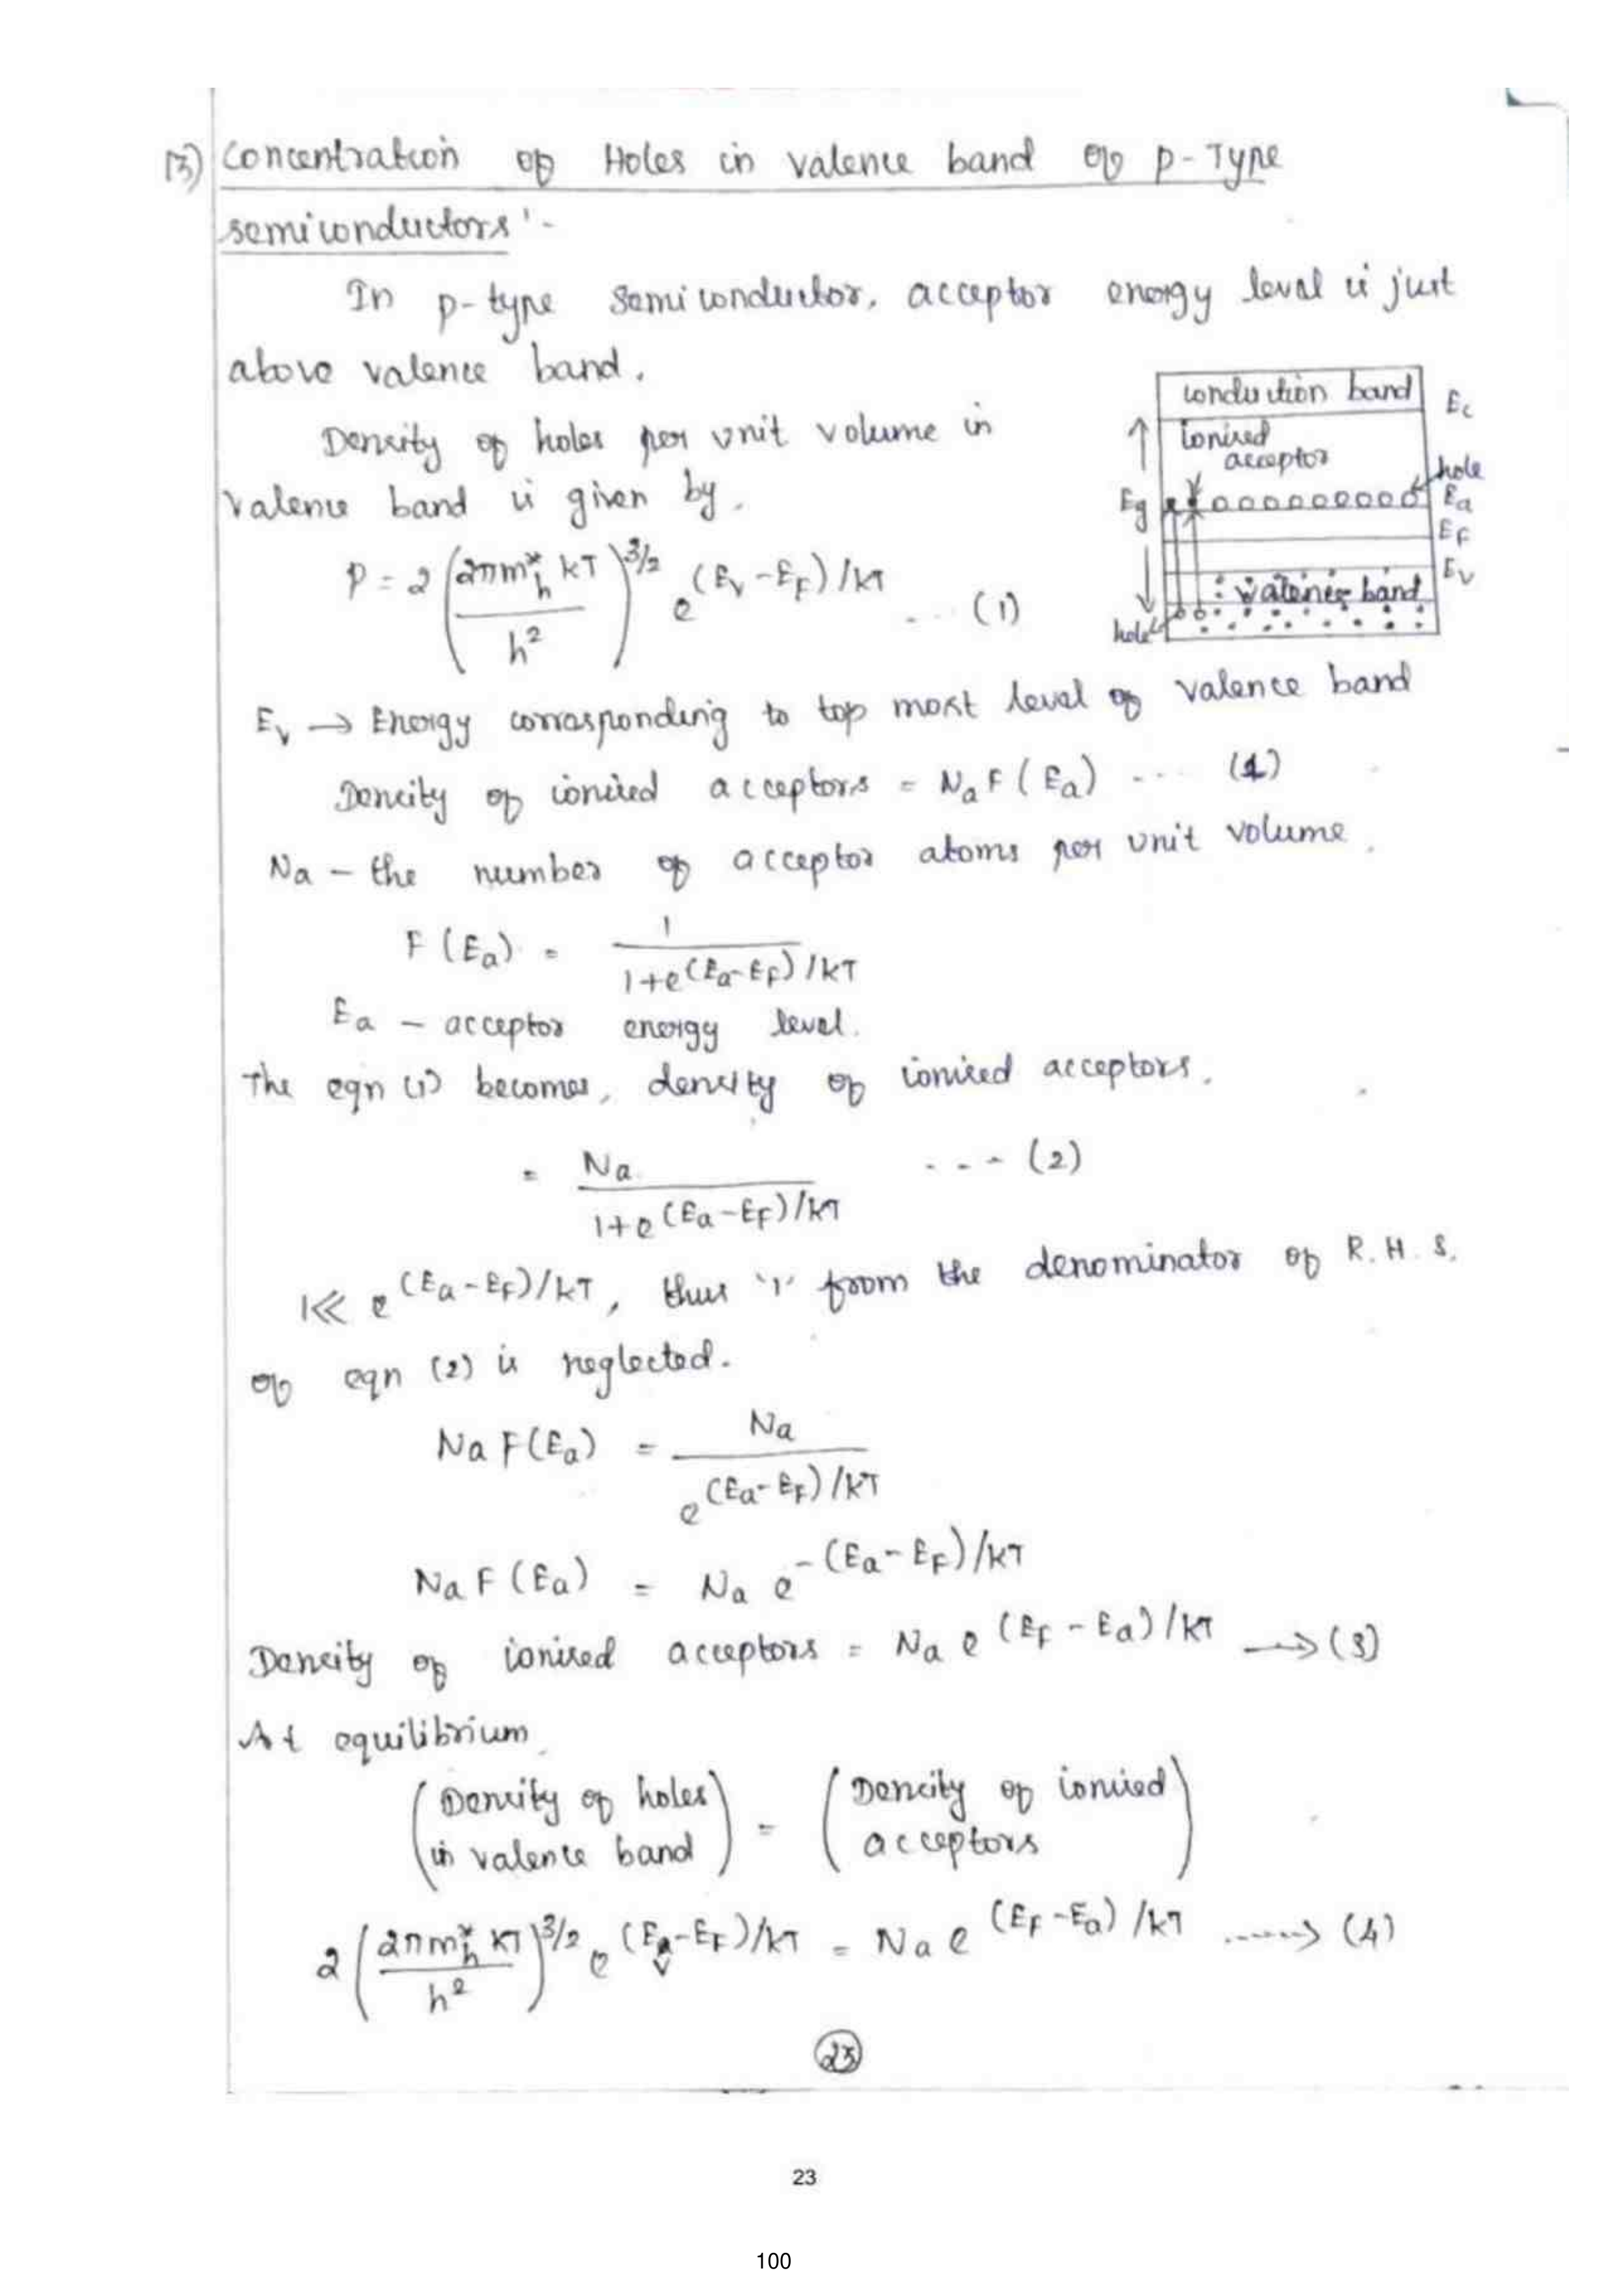 13) Concentration of Holes in valence band of p-Type
semiconductors:-
In p-type semiconductor, acceptor energy level is just
above valence band.
Density of holes per unit volume in
valence band is given by.
P = 2 (2πm*h kT / h²)^3/2 e^(Ev - EF)/kT ... (1)
conduction band Ec
ionised
acceptor
hole
Eg Ea
EF
Ev
valence band
hole
Ev → Energy corresponding to top most level of valence band
Density of ionised acceptors = Na F(Ea) ... (1)
Na - the number of acceptor atoms per unit volume.
F(Ea) = 1 / 1+e^(Ea-EF)/kT
Ea - acceptor energy level.
The eqn (1) becomes, density of ionised acceptors.
= Na / 1+e^(Ea-EF)/kT ... (2)
1≪ e^(Ea-EF)/kT, thus '1' from the denominator of R.H.S.
of eqn (2) is neglected.
Na F(Ea) = Na / e^(Ea-EF)/kT
Na F(Ea) = Na e^-(Ea-EF)/kT
Density of ionised acceptors = Na e^(EF-Ea)/kT →(3)
At equilibrium
(Density of holes in valence band) = (Density of ionised acceptors)
2 (2πm*h kT / h²)^3/2 e^(Ev-EF)/kT = Na e^(EF-Ea)/kT ......> (4)
23
23
100